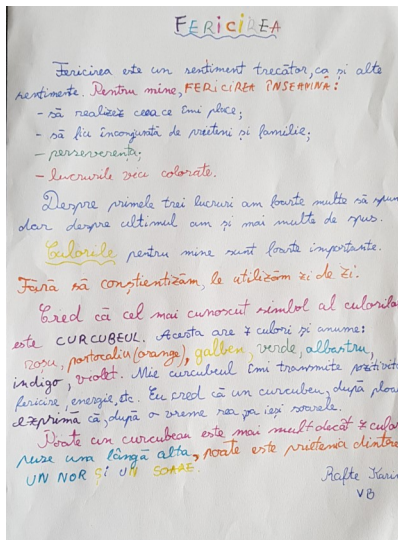 FERICIREA
Fericirea este un sentiment trecător, ca și alte
sentimente. Pentru mine, FERICIREA ÎNSEAMNĂ:
- să realizez ceea ce îmi place;
- să fiu înconjurată de prieteni și familie;
- perseverența;
- lucrurile viu colorate.
Despre primele trei lucruri am foarte multe să spun
dar despre ultimul am și mai multe de spus.
Culorile pentru mine sunt foarte importante.
Fără să conștientizăm, le utilizăm zi de zi.
Cred că cel mai cunoscut simbol al culorilor
este CURCUBEUL. Acesta are 7 culori și anume:
roșu, portocaliu (orange), galben, verde, albastru,
indigo, violet. Mie curcubeul îmi transmite pozitivit
fericire, energie, etc. Eu cred că un curcubeu, după ploa
exprimă că, după o vreme rea pa ieși soarele.
Poate un curcubeu este mai mult decât 7 culo
puse una lângă alta, poate este prietenia dintre
UN NOR ȘI UN SOARE.
Rafte Karin
V B